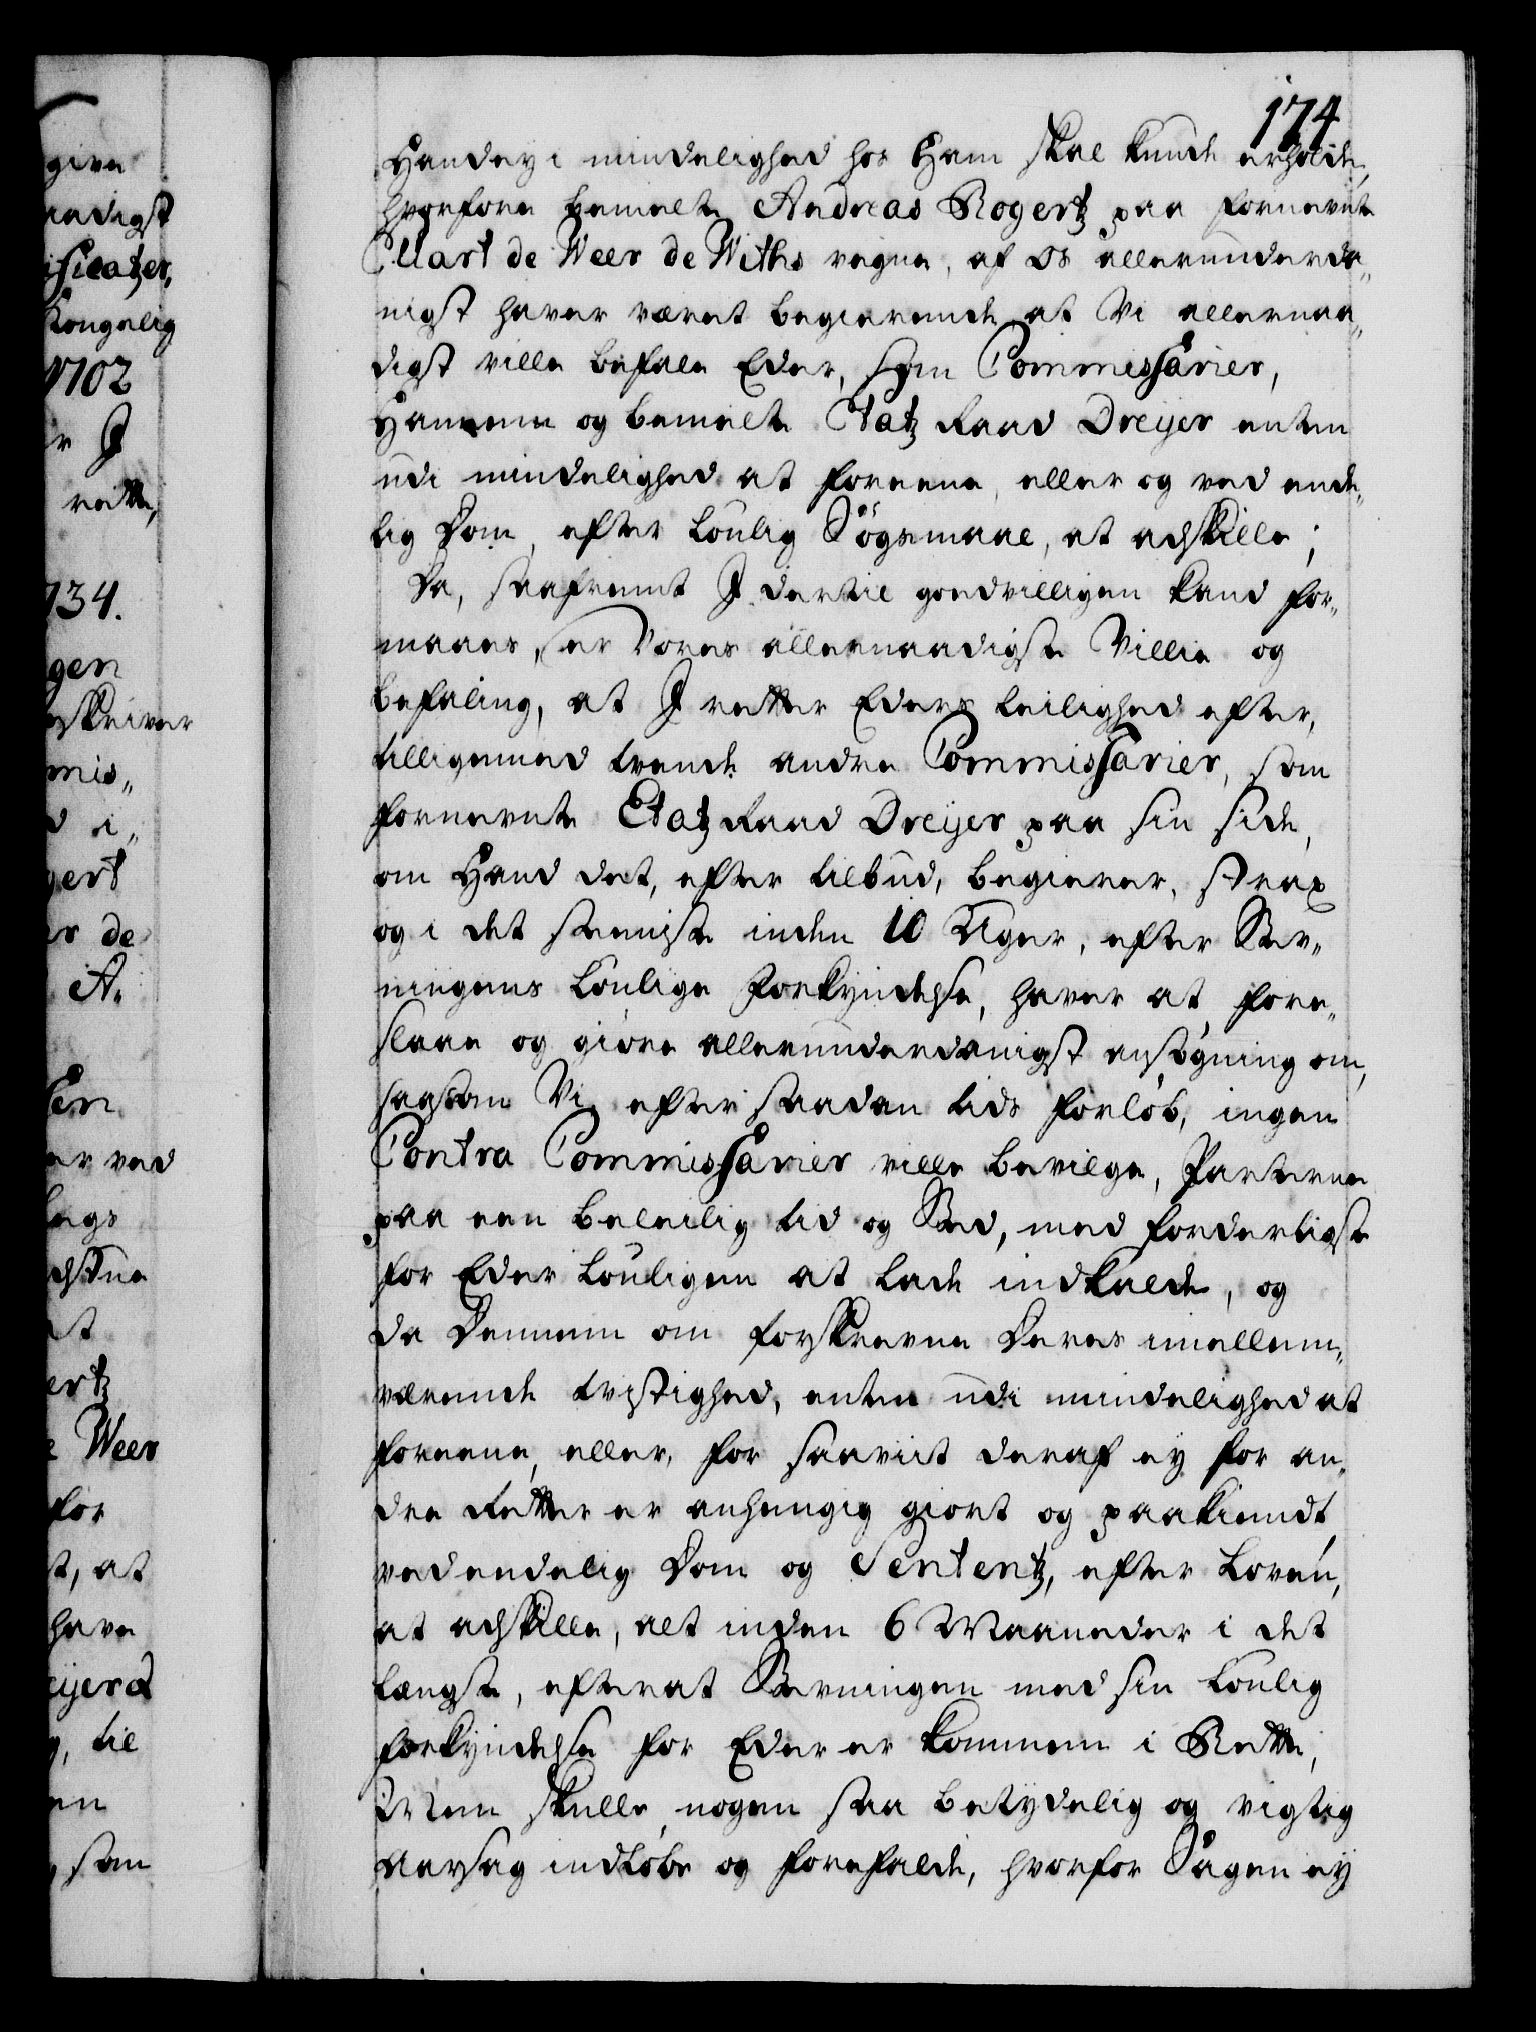 174
Hand ey i mindelighed hos Ham skal kunde erholde,
hvorfore bemelte Andreas Rogertz paa fornevnte
Clart de Weer de Withs vegne, af Os allerunderda„
nigst haver været begierende at Vi allernaa„
digst ville befale Eder, som Commissarier,
Hannem og bemelte Etatz Raad Dreyer enten
udi mindelighed at foreene, eller og ved ende„
lig Dom, efter Loulig Søgsmaal, at adskille;
Da, saafremt I dertil goedvilligen kand for„
maaes, er Vores allernaadigste Villie og
befaling, at I retter Eders leilighed efter,
tilligemed tvende andre Commissarier, som
fornevnte Etatz Raad Dreyer paa sin side,
om Hand det, efter tilbud, begierer, strax
og i det seeniste inden 10 Uger, efter Stev„
ningens Loulige Forkyndelse, haver at fore„
slaae og giøre allerunderdanigst ansøgning om,
saasom Vi, efter saadan tids forløb, ingen
Contra Commissarier ville bevilge, Parterne
paa een beleilig tid og Sted, med forderligste
for Eder Louligen at lade indkalde, og
da Dennem om forskrevne Deres imellem„
værende tvistighed, enten udi mindelighed at
foreene, eller, for saaviit deraf ey for an„
dre Retter er anhengig giort og paakiendt,
ved endelig Dom og Sententz, efter Loven,
at adskille, alt inden 6 Maaneder i det
længste, efterat Stevningen med sin Loulig
forkyndelse for Eder er kommen i Rette;
Men skulle nogen saa betydelig og vigtig
Aarsag indløbe og forefalde, hvorfor Sagen ey